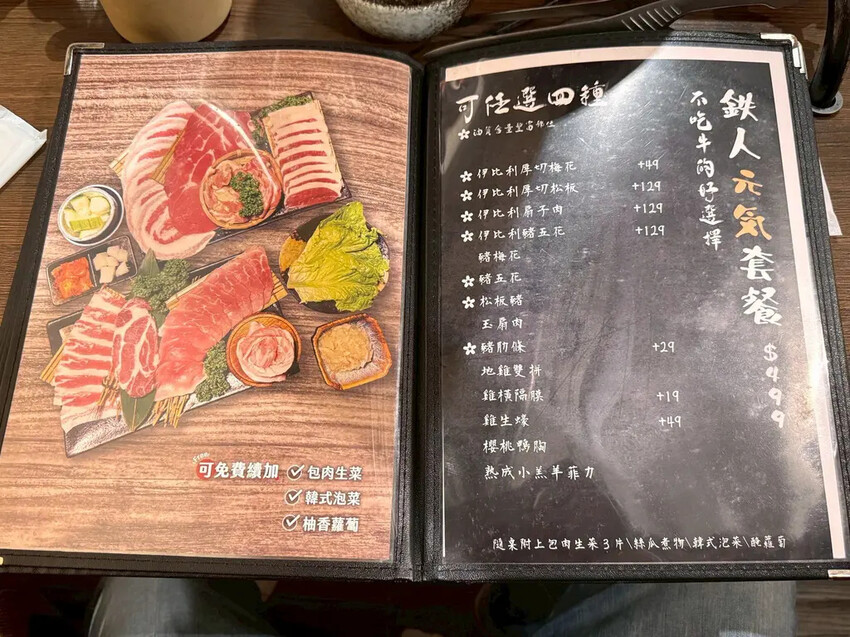 可免費續加
包肉生菜
韓式泡菜
柚香蘿蔔
鉄人元気套餐 $499
不吃牛的好選擇
可任選四種
伊比利厚切梅花 +49
伊比利厚切松板 +129
伊比利扇子肉 +129
伊比利豬五花 +129
豬梅花
豬五花
松板豬
玉肩肉
豬肋條 +29
地雞雙拼
雞橫隔膜 +19
雞生蠔 +49
櫻桃鴨胸
熟成小羔羊菲力
隨桌附上包肉生菜3片\絲瓜煮物\韓式泡菜\醃蘿蔔